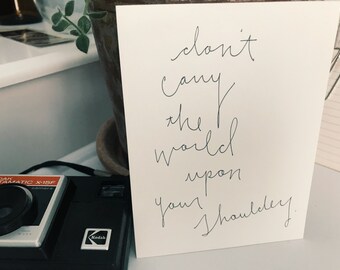 don't
carry
the
world
upon
your shoulders.
KODAK
INSTAMATIC X-15F
Kodak